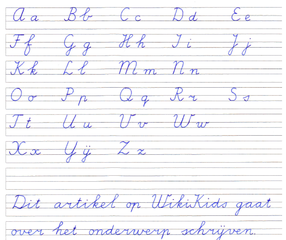 A a B b C c D d E e
F f G g H h I i J j
K k L l M m N n
O o P p Q q R r S s
T t U u V v W w
X x IJ ij Z z
Dit artikel op WikiKids gaat
over het onderwerp schrijven.